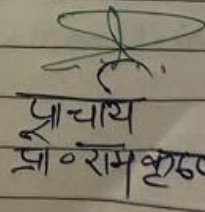 प्राचार्य
प्रा॰रामकृष्ण